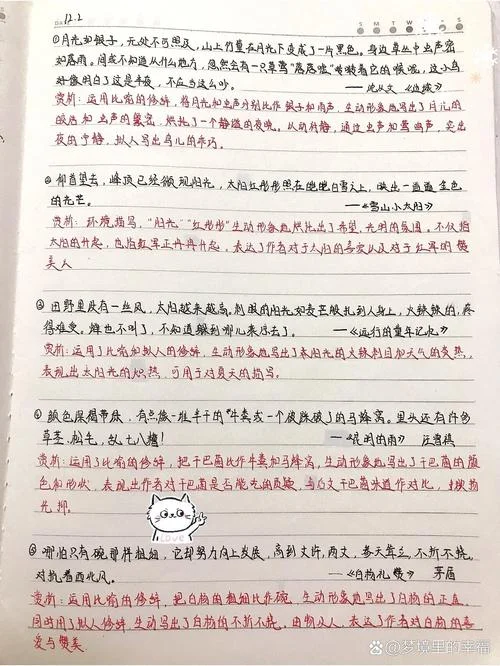 12.2
S M T W T F S
①月光如银子，无处不可照及，山上竹篁在月光下变成了一片黑色。身边草丛中虫声密
如落雨。间或不知道从什么地方，忽然会有一只草莺“落落嘘”啭着它的喉咙，这小鸟
好像明白了这是半夜，不应当这么吵。 ——沈从文《边城》
赏析：运用比喻的修辞，将月光和虫声分别比作银子和雨声，生动形象地写出了月儿的
皎洁和虫声的繁密，烘托了一个静谧的夜晚。从动衬静，通过虫声和莺曲声，突出
夜的宁静，拟人写出鸟儿的乖巧。
仰首望去，峰顶已经微现阳光，太阳红彤彤照在皑皑白雪之上，映出一道道金色
的光芒。 ——《雪山小太阳》
赏析：环境描写，“阳光”“红彤彤”生动形象地烘托出了希望，光明的氛围。不仅指
太阳的升起，也指红军正冉冉升起。表达了作者对于太阳的喜爱以及对于红军的赞
美
③田野里没有一丝风，太阳越来越高，刺眼的阳光如麦芒般扎到人身上，火辣辣的，疼
得难受。蝉也不叫了，不知道躲到哪儿乘凉去了。 ——《远行的童年记忆》
赏析：运用了比喻和拟人的修辞，生动形象地写出了本阳光的火辣刺目加天气的炎热，
表现出太阳光的炽热，可用于对夏天的描写。
④颜色深褐带绿，有点像一堆半干的牛粪或一个被踩破了的马蜂窝。里头还有许多
草茎、松毛，乱七八糟！ ——《昆明的雨》 汪曾祺
赏析：运用了比喻的修辞，把干巴菌比作牛粪加马蜂窝，生动形象地写出了干巴菌的颜
色和形状，表现出作者对干巴菌是否能吃的质疑，与下文干巴菌味道作对比，欲扬
先抑。
Love
⑤哪怕只有碗那样粗细，它却努力向上发展，高到丈许，两丈，参天耸立，不折不挠，
对抗着西北风。 ——《白杨礼赞》 茅盾
赏析：运用比喻的修辞，把白杨的粗细比作碗，生动形象地写出了白杨的正直，
同时用了拟人修辞，生动写出了白杨的不折不挠，由物及人，表达了作者对白杨的喜
爱与赞美.
百家号/梦境里的幸福